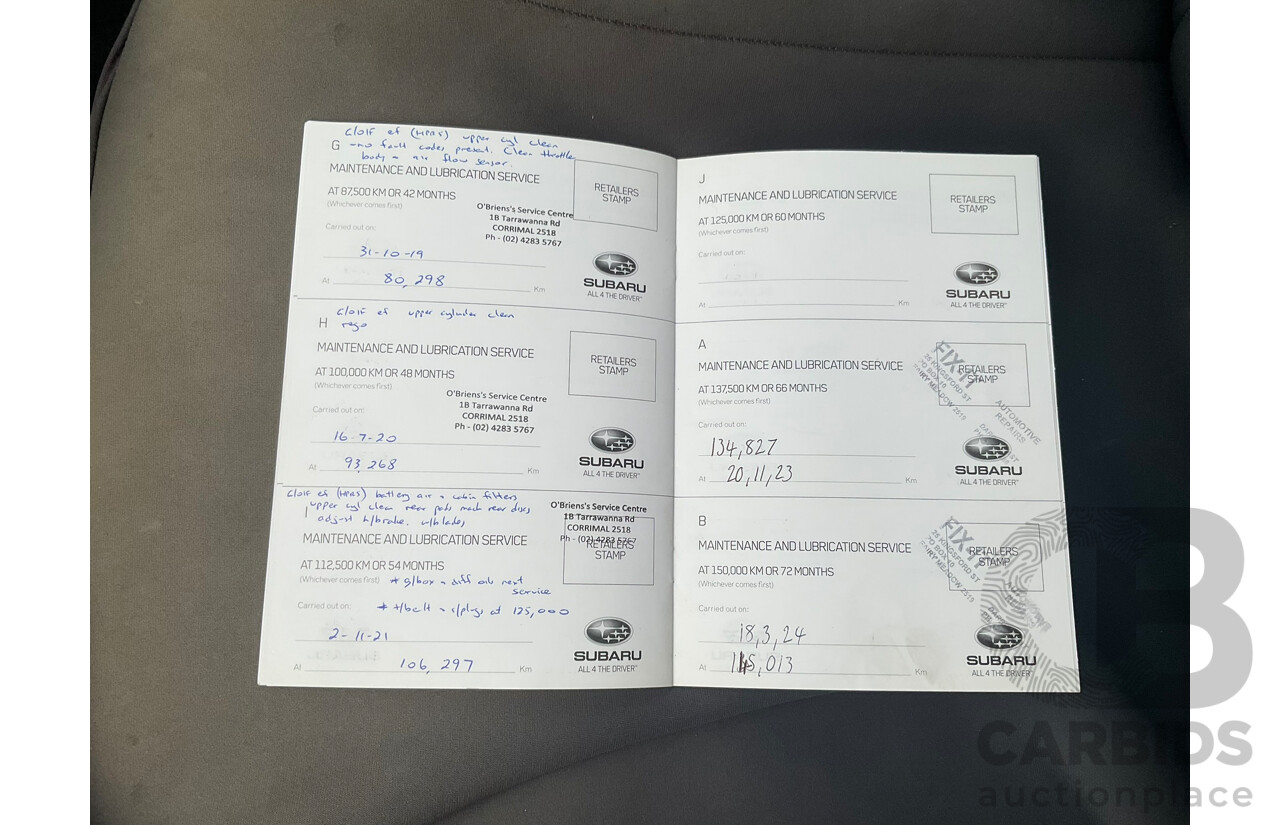 C/OIF ef (HPAS) upper cyl clean
G -no fault codes present. Clean throttle
body + air flow sensor.
MAINTENANCE AND LUBRICATION SERVICE
AT 87,500 KM OR 42 MONTHS
(Whichever comes first)
RETAILERS
STAMP
O'Briens's Service Centre
1B Tarrawanna Rd
CORRIMAL 2518
Ph - (02) 4283 5767
Carried out on:
31-10-19
At 80,298 Km
SUBARU
ALL 4 THE DRIVER
C/OIF ef upper cylinder clean
H rego
MAINTENANCE AND LUBRICATION SERVICE
AT 100,000 KM OR 48 MONTHS
(Whichever comes first)
RETAILERS
STAMP
O'Briens's Service Centre
1B Tarrawanna Rd
CORRIMAL 2518
Ph - (02) 4283 5767
Carried out on:
16-7-20
At 93,268 Km
SUBARU
ALL 4 THE DRIVER
C/OIF ef (HPAS) battery air + cabin filters
I upper cyl clean rear pads mach rear discs
adjust h/brake. w/blades
O'Briens's Service Centre
1B Tarrawanna Rd
CORRIMAL 2518
Ph - (02) 4283 5767
RETAILERS
STAMP
MAINTENANCE AND LUBRICATION SERVICE
AT 112,500 KM OR 54 MONTHS
(Whichever comes first) * g/box + diff oils next
service
Carried out on: * t/belt + s/plugs at 125,000
2-11-21
At 106,297 Km
SUBARU
ALL 4 THE DRIVER
J
MAINTENANCE AND LUBRICATION SERVICE
AT 125,000 KM OR 60 MONTHS
(Whichever comes first)
RETAILERS
STAMP
Carried out on:
At Km
SUBARU
ALL 4 THE DRIVER
A
MAINTENANCE AND LUBRICATION SERVICE
AT 137,500 KM OR 66 MONTHS
(Whichever comes first)
RETAILERS
STAMP
FIX-IT
25 KINGSFORD ST
PO BOX 10
FAIRY MEADOW 2519
AUTOMOTIVE
REPAIRS
Carried out on:
134,827
At 20,11,23 Km
SUBARU
ALL 4 THE DRIVER
B
MAINTENANCE AND LUBRICATION SERVICE
AT 150,000 KM OR 72 MONTHS
(Whichever comes first)
RETAILERS
STAMP
FIX-IT
25 KINGSFORD ST
PO BOX 10
FAIRY MEADOW 2519
Carried out on:
18,3,24
At 145,013 Km
SUBARU
ALL 4 THE DRIVER
CB
CARBIDS
auctionplace